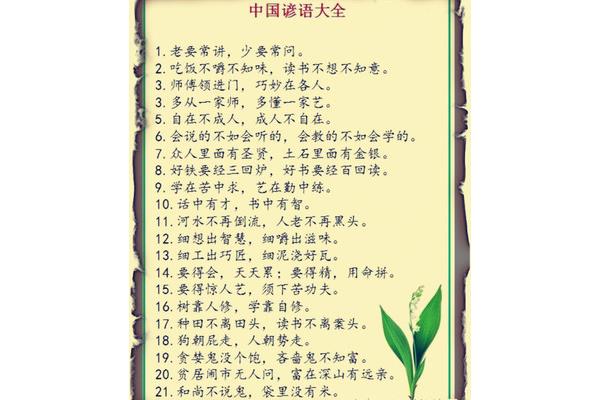 中国谚语大全
1. 老要常讲，少要常问。
2. 吃饭不嚼不知味，读书不想不知意。
3. 师傅领进门，巧妙在各人。
3. 多从一家师，多懂一家艺。
5. 自在不成人，成人不自在。
6. 会说的不如会听的，会教的不如会学的。
7. 众人里面有圣贤，土石里面有金银。
8. 好铁要经三回炉，好书要经百回读。
9. 学在苦中求，艺在勤中练。
10. 话中有才，书中有智。
11. 河水不再倒流，人老不再黑头。
12. 细想出智慧，细嚼出滋味。
13. 细工出巧匠，细泥浇好瓦。
14. 要得会，天天累；要得精，用命拼。
15. 要得惊人艺，须下苦功夫。
16. 树靠人修，学靠自修。
17. 种田不离田头，读书不离案头。
18. 狗朝屁走，人朝势走。
19. 贪婪鬼没个饱，吝啬鬼不知富。
20. 贫居闹市无人问，富在深山有远亲。
21. 和尚不说鬼，袋里没有米。